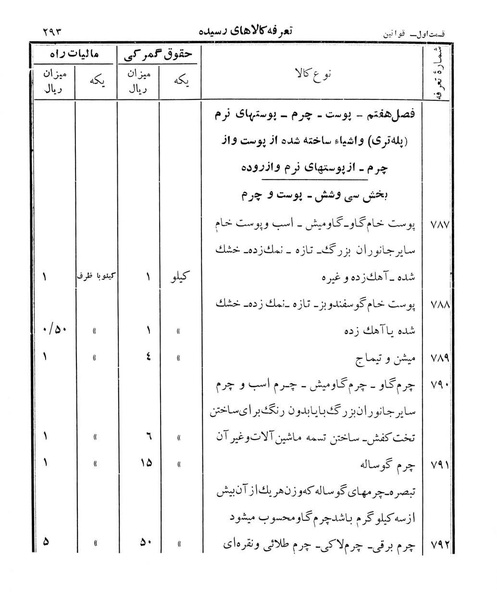 قسمت اول ـ قوانین    تعرفه کالاهای رسیده    ۲۹۳
شمارهٔ تعرفه    نوع کالا    حقوق گمرکی    مالیات راه
یکه    میزان ریال    یکه    میزان ریال
فصل هفتم ـ پوست ـ چرم ـ پوستهای نرم
(پله‌تری) واشیاء ساخته شده از پوست واز
چرم ـ از پوستهای نرم وازروده
بخش سی وشش ـ پوست و چرم
۷۸۷    پوست خام گاو ـ گاومیش ـ اسب وپوست خام
سایر جانوران بزرگ ـ تازه ـ نمک زده ـ خشک
شده ـ آهک زده و غیره    کیلو    ۱    کیلو با ظرف    ۱
۷۸۸    پوست خام گوسفندوبز ـ تازه ـ نمک زده ـ خشک
شده یا آهک زده    »    ۱    »    ۰/۵۰
۷۸۹    میشن و تیماج    »    ۴    »    ۱
۷۹۰    چرم گاو ـ چرم گاومیش ـ چرم اسب و چرم
سایر جانوران بزرگ با یا بدون رنگ برای ساختن
تخت کفش ـ ساختن تسمه ماشین آلات وغیر آن    »    ۶    »    ۱
۷۹۱    چرم گوساله    »    ۱۵    »    ۱
تبصره ـ چرمهای گوساله که وزن هریک از آن بیش
از سه کیلو گرم باشد چرم گاو محسوب میشود
۷۹۲    چرم برقی ـ چرم لاکی ـ چرم طلائی و نقره‌ای    »    ۵۰    »    ۵